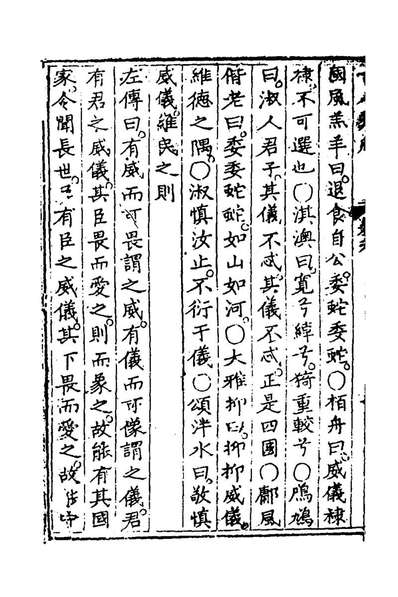 國風羔羊曰。退食自公。委蛇委蛇。○栢舟曰。威儀棣
棣。不可選也○淇澳曰。寬兮綽兮。猗重較兮○鳲鳩
曰。淑人君子。其儀不忒。其儀不忒。正是四國○鄘風
偕老曰。委委蛇蛇。如山如河。○大雅抑曰。抑抑威儀。
維德之隅。○淑慎汝止。不衍于儀○頌泮水曰。敬慎
威儀。維民之則
左傳曰。有威而可畏謂之威。有儀而可像謂之儀。君
有君之威儀。其臣畏而愛之。則而象之。故能有其國
家。令聞長世。臣有臣之威儀。其下畏而愛之。故能守